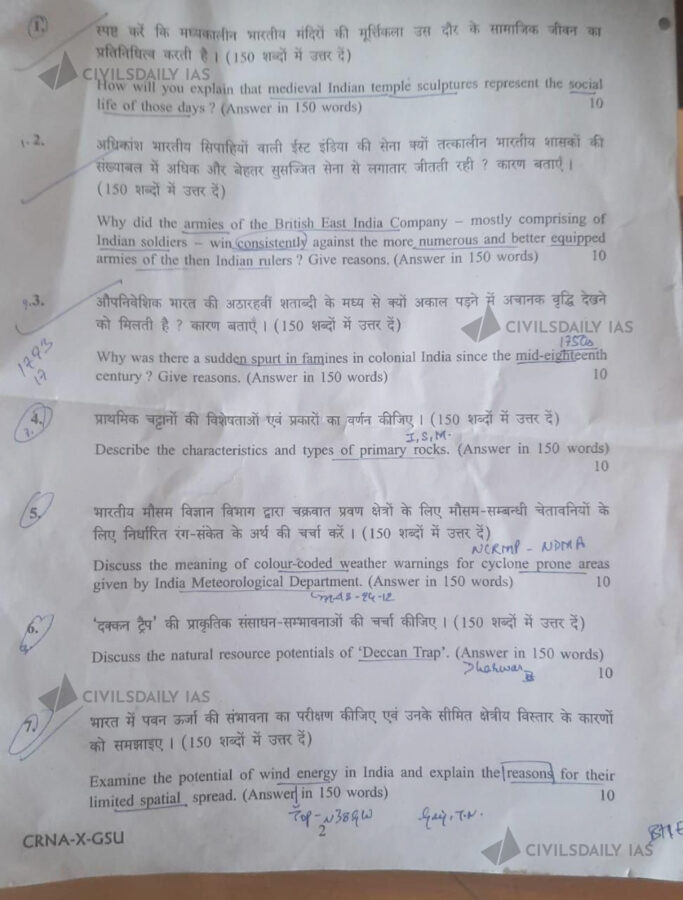 1.
स्पष्ट करें कि मध्यकालीन भारतीय मंदिरों की मूर्तिकला उस दौर के सामाजिक जीवन का
प्रतिनिधित्व करती है । (150 शब्दों में उत्तर दें)
CIVILSDAILY IAS
How will you explain that medieval Indian temple sculptures represent the social
life of those days ? (Answer in 150 words)
10
2.
अधिकांश भारतीय सिपाहियों वाली ईस्ट इंडिया की सेना क्यों तत्कालीन भारतीय शासकों की
संख्याबल में अधिक और बेहतर सुसज्जित सेना से लगातार जीतती रही ? कारण बताएँ ।
(150 शब्दों में उत्तर दें)
Why did the armies of the British East India Company – mostly comprising of
Indian soldiers – win consistently against the more numerous and better equipped
armies of the then Indian rulers ? Give reasons. (Answer in 150 words)
10
3.
औपनिवेशिक भारत की अठारहवीं शताब्दी के मध्य से क्यों अकाल पड़ने में अचानक वृद्धि देखने
को मिलती है ? कारण बताएँ । (150 शब्दों में उत्तर दें)
CIVILSDAILY IAS
1750s
1793
17
Why was there a sudden spurt in famines in colonial India since the mid-eighteenth
century ? Give reasons. (Answer in 150 words)
10
4.
प्राथमिक चट्टानों की विशेषताओं एवं प्रकारों का वर्णन कीजिए । (150 शब्दों में उत्तर दें)
I, S, M.
Describe the characteristics and types of primary rocks. (Answer in 150 words)
10
5.
भारतीय मौसम विज्ञान विभाग द्वारा चक्रवात प्रवण क्षेत्रों के लिए मौसम-सम्बन्धी चेतावनियों के
लिए निर्धारित रंग-संकेत के अर्थ की चर्चा करें । (150 शब्दों में उत्तर दें)
NCRMP - NDMA
Discuss the meaning of colour-coded weather warnings for cyclone prone areas
given by India Meteorological Department. (Answer in 150 words)
10
6.
'दक्कन ट्रैप' की प्राकृतिक संसाधन-सम्भावनाओं की चर्चा कीजिए । (150 शब्दों में उत्तर दें)
Discuss the natural resource potentials of 'Deccan Trap'. (Answer in 150 words)
Dharwar
10
CIVILSDAILY IAS
7.
भारत में पवन ऊर्जा की संभावना का परीक्षण कीजिए एवं उनके सीमित क्षेत्रीय विस्तार के कारणों
को समझाइए । (150 शब्दों में उत्तर दें)
Examine the potential of wind energy in India and explain the reasons for their
limited spatial spread. (Answer in 150 words)
10
Top - N38GW
Guj, T.N.
2
CRNA-X-GSU
CIVILSDAILY IAS